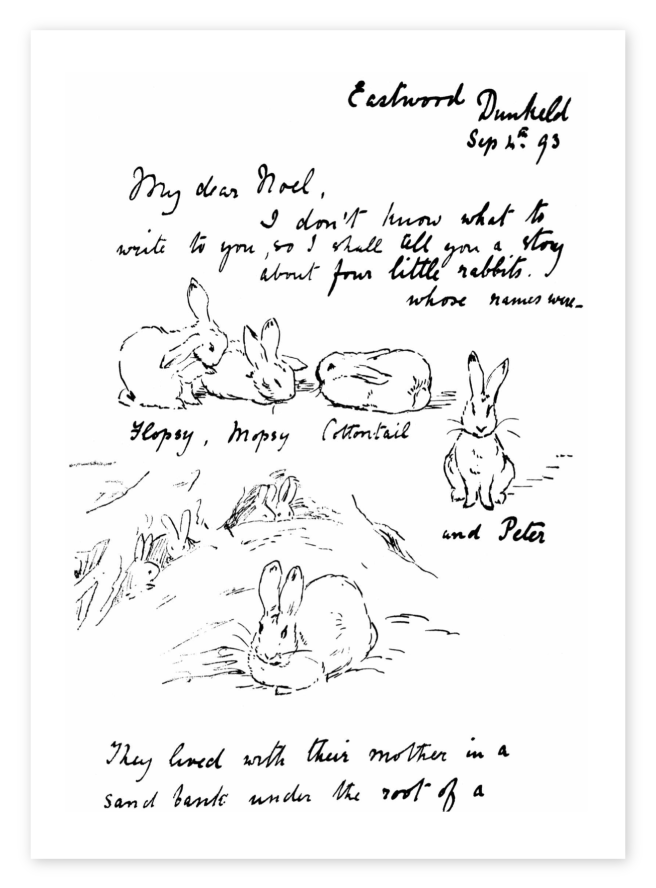 Eastwood Dunkeld
Sep 4th 93
My dear Noel,
I don't know what to
write to you, so I shall tell you a story
about four little rabbits.
whose names were_
Flopsy, Mopsy Cottontail
and Peter
They lived with their mother in a
sand bank under the root of a